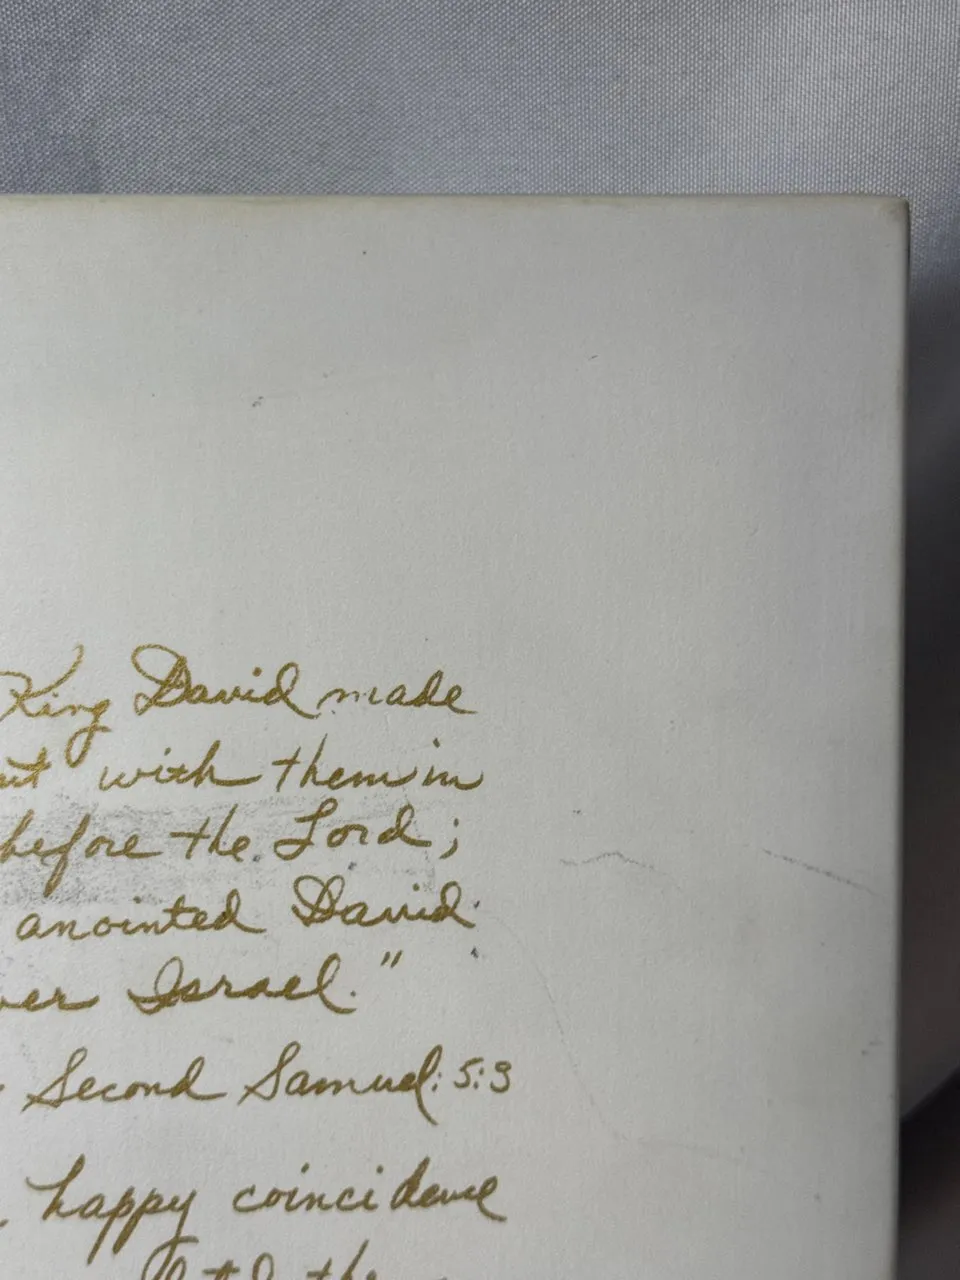 King David made
with them in
before the Lord;
anointed David
Israel."
Second Samuel: 5:3
happy coincidence
the